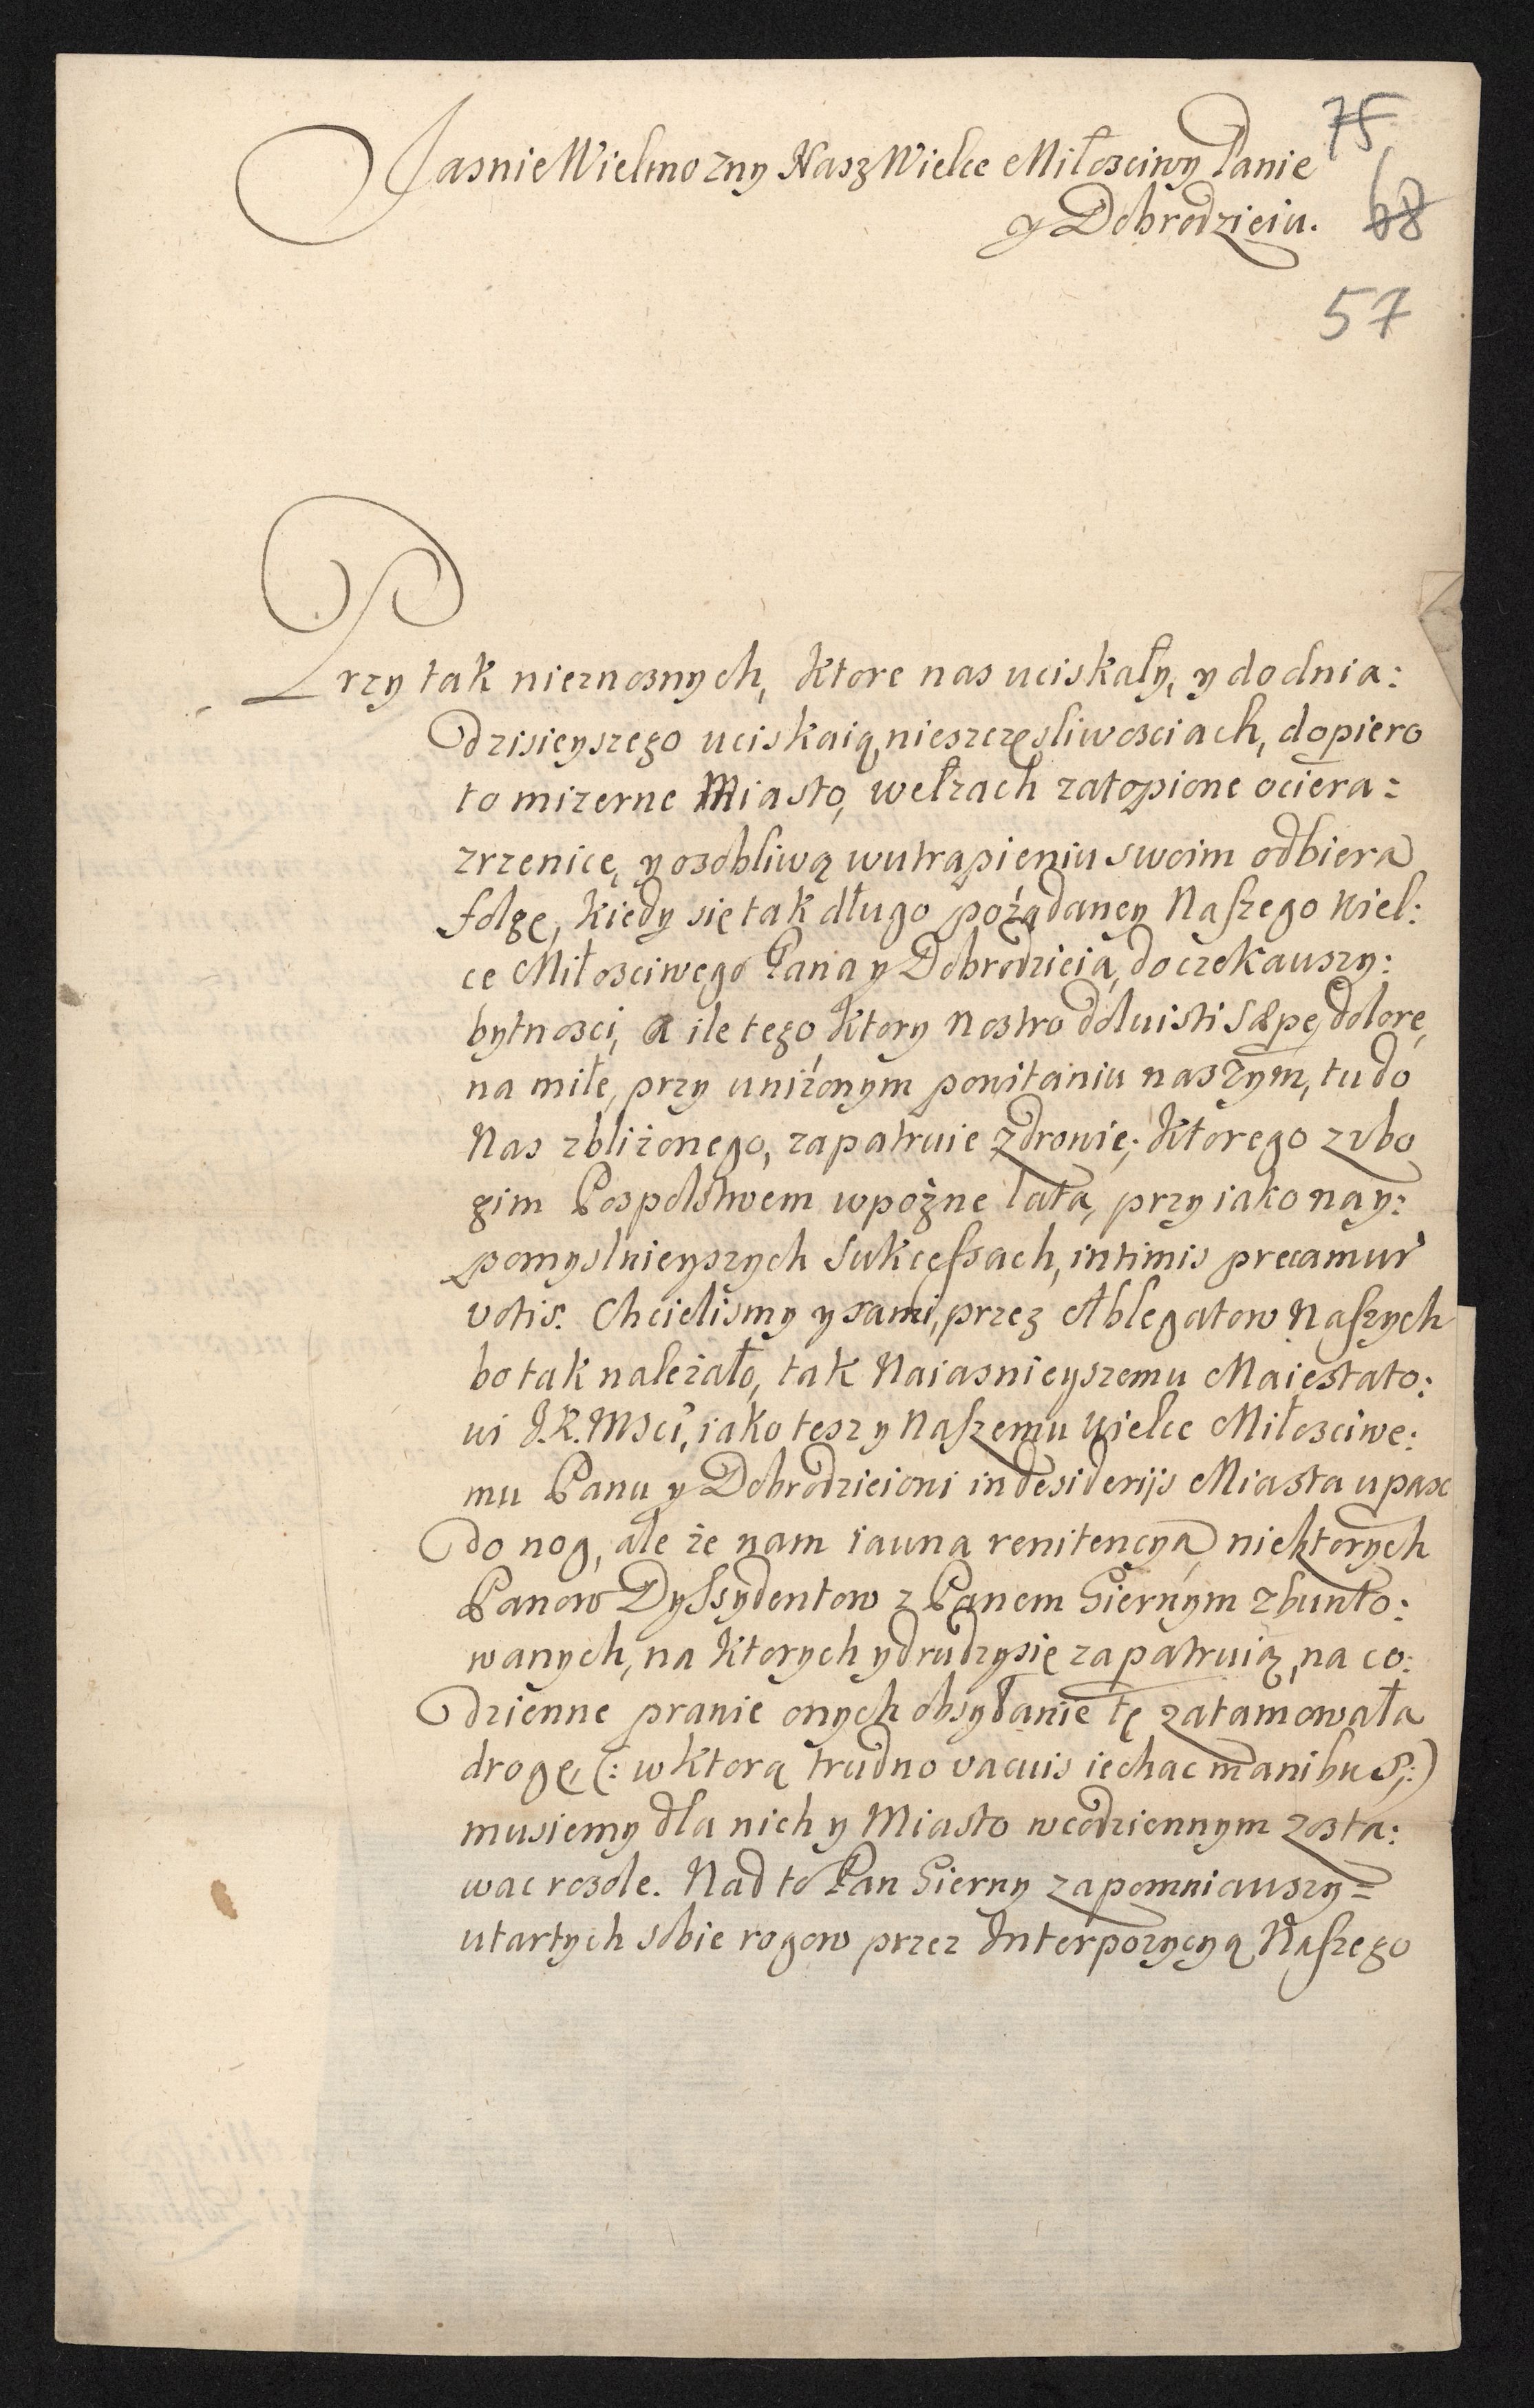 Jasnie Wielmozny Nasz Wielce Miłosciwy Panie
75
y Dobrodzieiu.
68
57
Przy tak nieznosnych, ktore nas uciskały, y do dnia:
dzisieyszego uciskaią nieszczęsliwosciach, dopiero
to mizerne Miasto, wełzach zatopione ociera:
zrzenice, y osobliwą w utrapieniu swoim odbiera
folgę, kiedy się tak długo pożądaney Naszego Wiel:
ce Miłosciwego Pana y Dobrodzieia, doczekauszy:
bytnosci, a ile tego, ktory nostro doluisti sæpe, dolore,
na miłe, przy uniżonym powitaniu naszym, tu do
Nas zbliżonego, zapatruie zdrowie; ktorego z vbo
gim Pospolstwem w pożne lata, przy iako nay:
pomyslnieyszych sukcessach, intimis precamur
votis. Chcielismy y sami, przez Ablegatow Naszych
bo tak należało, tak Naiasnieyszemu Maiestato:
wi J.K.Msci, iako tesz y Naszemu Wielce Miłosciwe:
mu Panu y Dobrodzieiowi in desiderijs Miasta upasc
do nog, ale że nam iawna renitencya niektorych
Panow Dyssydentow z Panem Giernym zbunto:
wanych, na ktorych y drudzy się zapatruią, na co:
dzienne prawie onych obsyłanie tę zatamowała
drogę, (: w ktorą trudno vacuis iechac manibus;:)
musiemy dla nich y Miasto w codziennym zosta:
wac rosole. Nad to Pan Gierny zapomniauszy:
utartych sobie rogow przez Interpozycyą Naszego